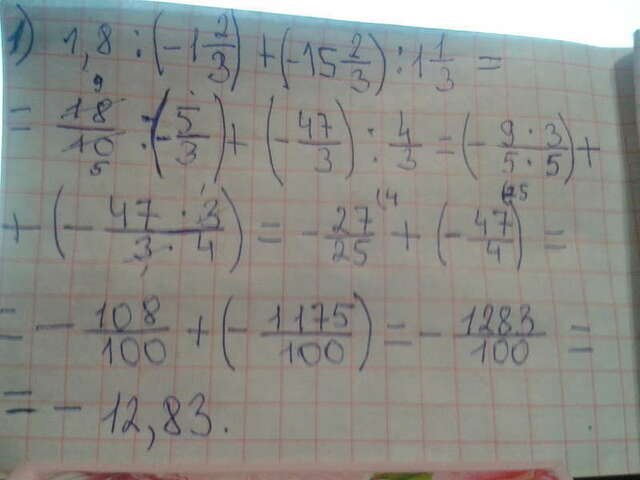 1) 1,8 : (-1 2/3) + (-15 2/3) : 1 1/3 =
= 18/10 : (-5/3) + (-47/3) : 4/3 = (-9·3/5·5) +
+ (-47·3/3·4) = -27/25 + (-47/4) =
= -108/100 + (-1175/100) = -1283/100 =
= -12,83.